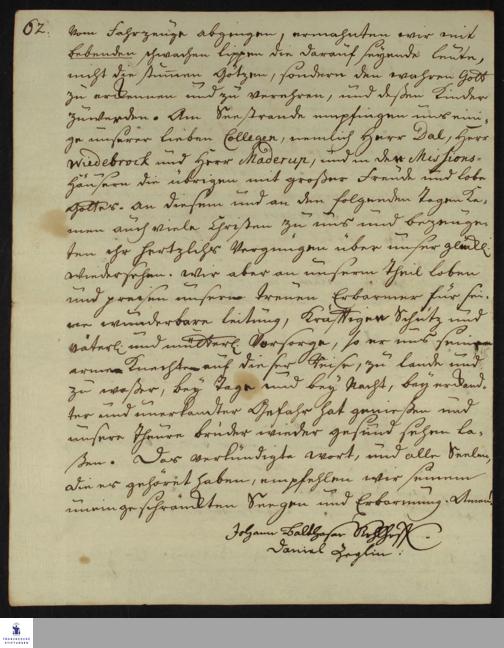 62.
vom Fahrzeuge abgingen, ermahnten wir mit
bebenden schwachen Lippen die darauf seyende Leute,
nicht die stummen Götzen, sondern den wahren Gott
zu erkennen und zu verehren, und deßen Kinder
zu werden. Am Seestrande empfingen uns eini-
ge unserer lieben Collegen, nemlich Herr Dal, Herr
Wiedebrock und Herr Maderup, und in den Missions-
Häusern die übrigen mit großer Freude und Lobe
Gottes. An diesem und an den folgenden Tagen ka-
men auch viele Christen zu uns und bezeugen
ten ihr hertzlichs Vergnügen über unser glückl.
Wiedersehen. Wir aber an unserm Theil loben
und preisen unsern treuen Erbarmer für sei-
ne wunderbare Leitung, kräfftigen Schutz und
väterl. und mütterl. Vorsorge, so er uns seinen
armen Knechten auf dieser Reise, zu Lande und
zu Waßer, bey Tage und bey Nacht, bey erkand-
ter und unerkandter Gefahr hat genießen und
unsere theure Brüder wieder gesund sehen la-
ßen. Das verkündigte Wort, und alle Seelen,
die es gehöret haben, empfehlen wir seinem
uneingeschränckten Seegen und Erbarmung. Amen!
Johann Balthasar Kohlhoff.
Daniel Zeglin.
FRANCKESCHE
STIFTUNGEN